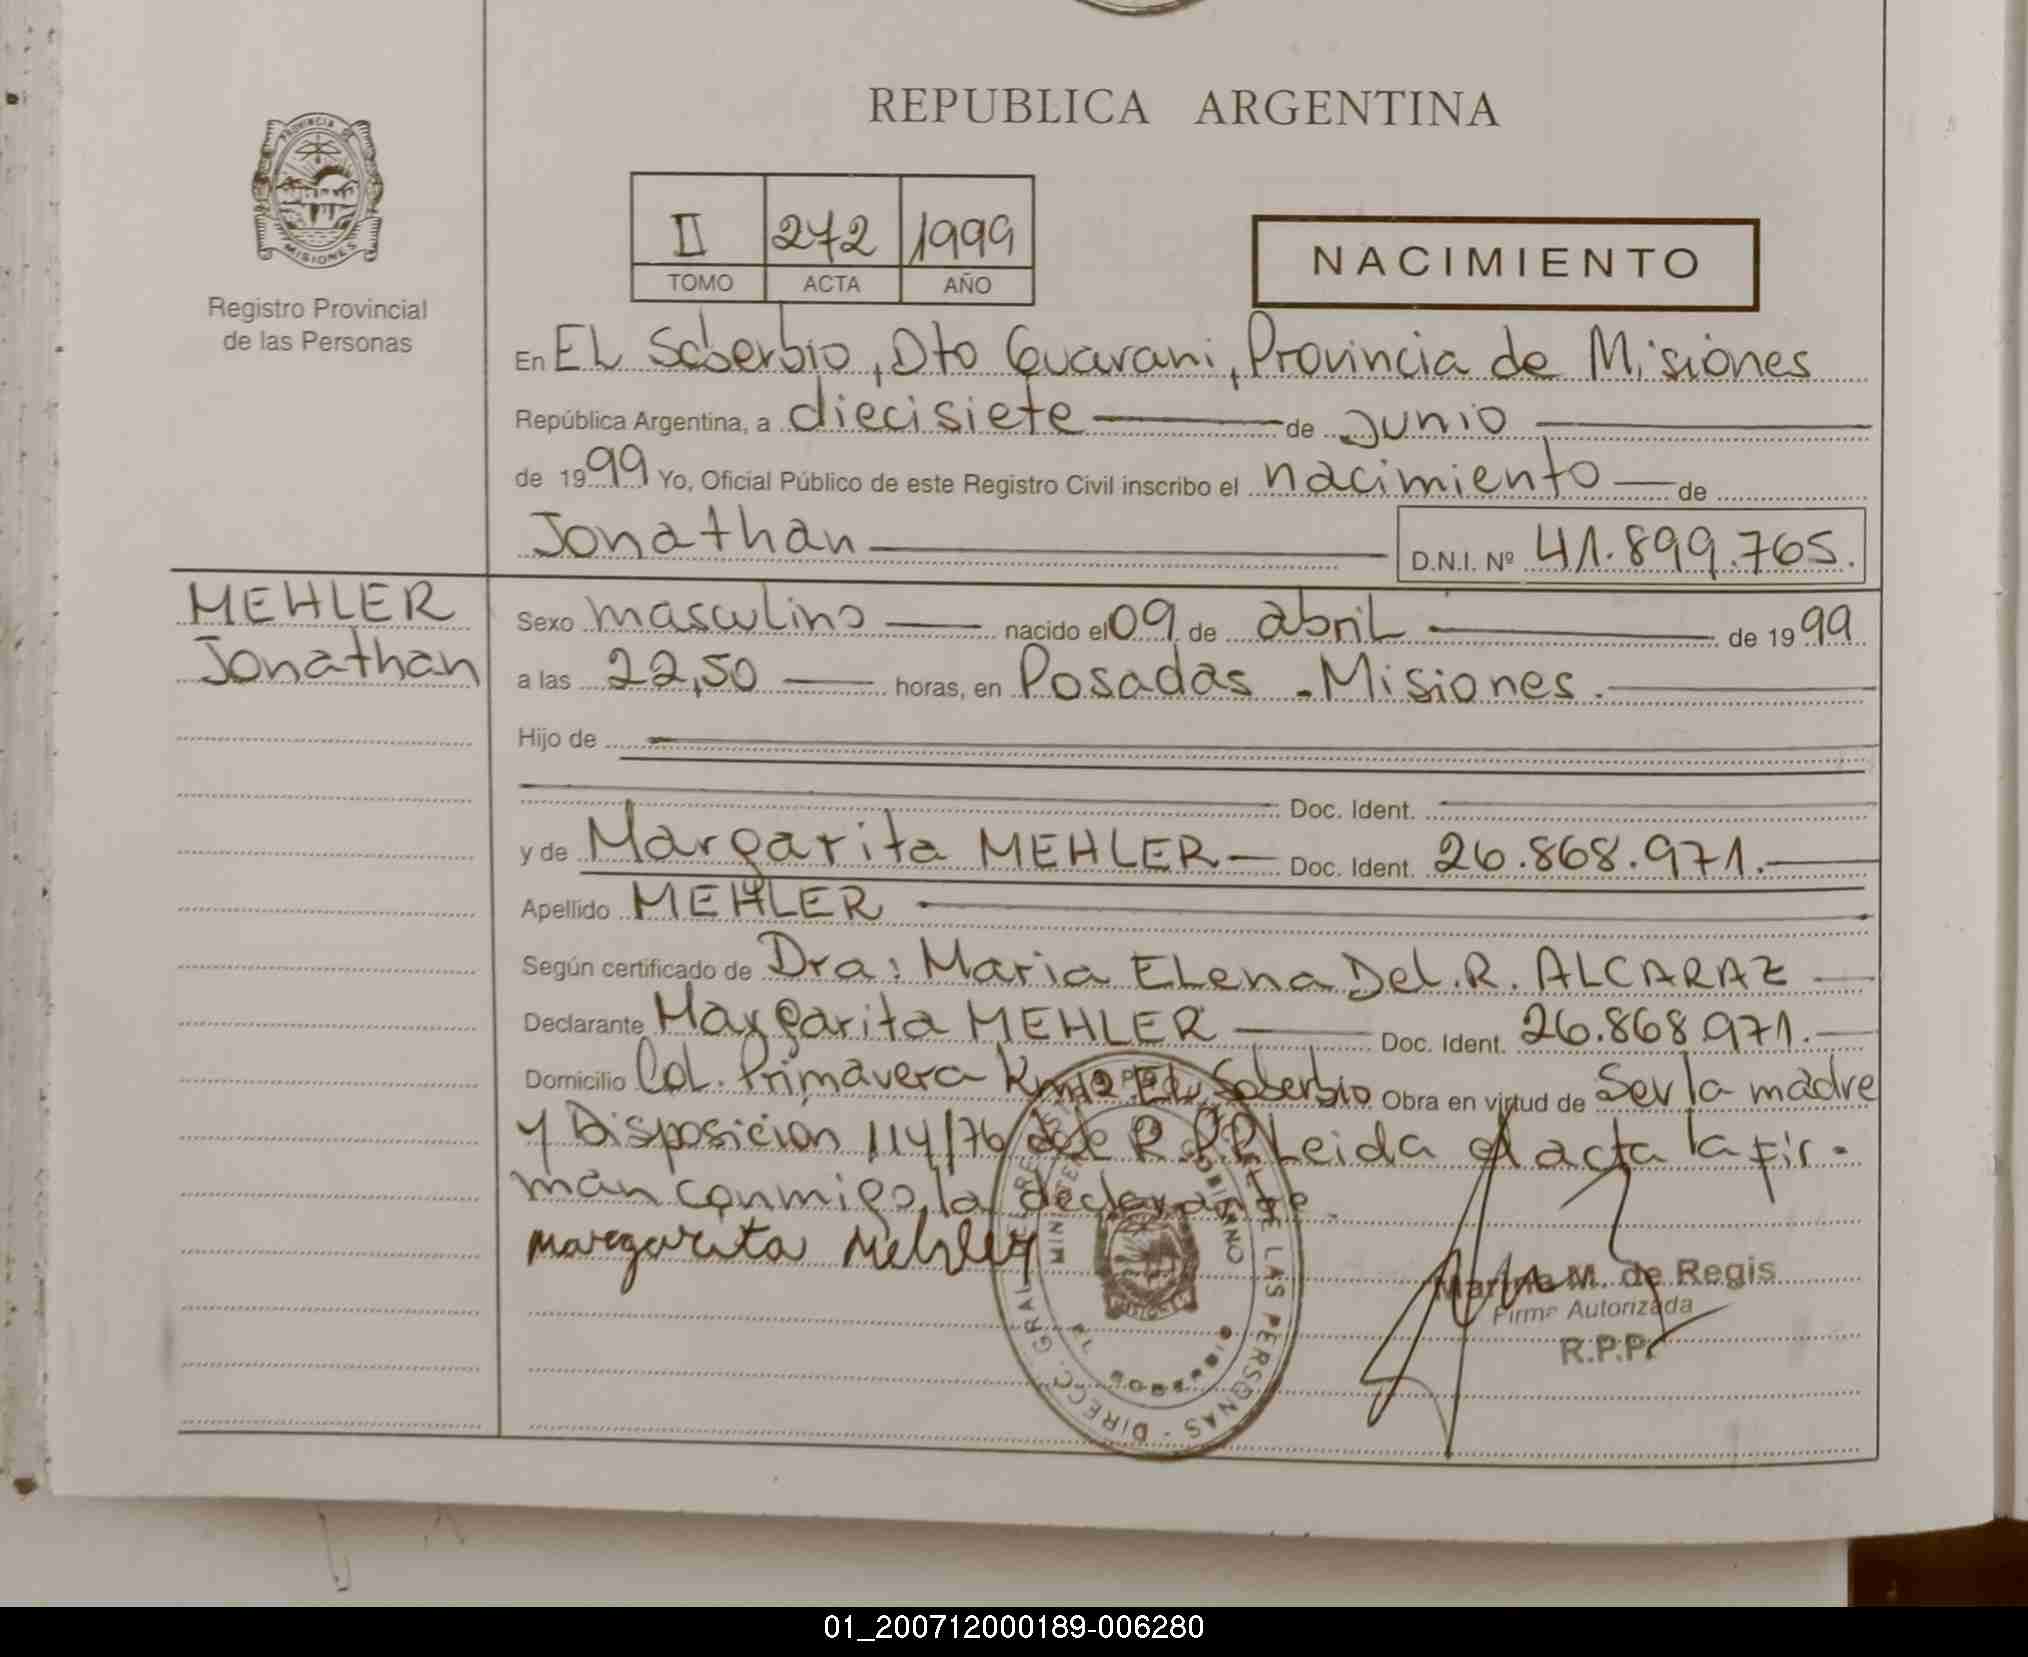 REPUBLICA ARGENTINA
PROVINCIA DE
MISIONES
Registro Provincial
de las Personas
II 272 1999
TOMO ACTA AÑO
NACIMIENTO
En EL Soberbio, Dto Guarani, Provincia de Misiones
República Argentina, a diecisiete de Junio
de 1999 Yo, Oficial Público de este Registro Civil inscribo el nacimiento de
Jonathan D.N.I. Nº 41.899.765.
MEHLER
Jonathan
Sexo masculino nacido el 09 de abril de 1999
a las 22,50 horas, en Posadas - Misiones.
Hijo de
Doc. Ident.
y de Margarita MEHLER Doc. Ident. 26.868.971.
Apellido MEHLER
Según certificado de Dra: Maria Elena Del. R. ALCARAZ
Declarante Margarita MEHLER Doc. Ident. 26.868.971.
Domicilio Col. Primavera Km 12 EL Soberbio Obra en virtud de Ser la madre
y Disposición 114/76 del R.P.P. Leida el acta la fir-
man conmigo, la declarante.
Margarita Mehler
DIRECC. GRAL. DE LAS PERSONAS
Marina M. de Regis
Firma Autorizada
R.P.P.
01_200712000189-006280